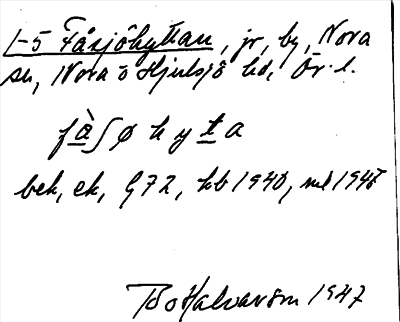 L-5 Fåsjöhyttan, jr, by, Nora
sn, Nora o Hjulsjö hd, Ör. l.
fà∫ø h y t a
bek, ek, G72, kb 1940, ml 1948
Bo Halvarson 1947